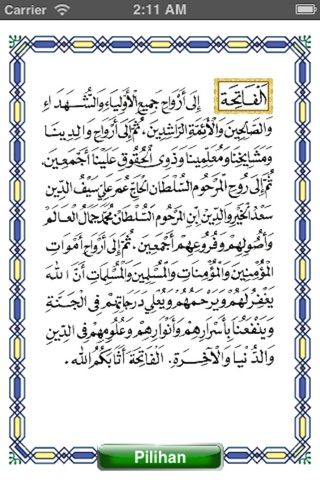 Carrier 2:11 AM
اَلْفَاتِحَة إِلَى أَرْوَاحِ جَمِيعِ الْأَوْلِيَاءِ وَالشُّهَدَاءِ
وَالصَّالِحِينَ وَالْأَئِمَّةِ الرَّاشِدِينَ. ثُمَّ إِلَى أَرْوَاحِ وَالِدِينَا
وَمَشَايِخِنَا وَمُعَلِّمِينَا وَذَوِى الْحُقُوقِ عَلَيْنَا أَجْمَعِينَ.
ثُمَّ إِلَى رُوحِ الْمَرْحُومِ السُّلْطَانِ الْحَاجّ عُمَر عَلِي سَيْفُ الدِّين
سَعْدُ الْخَيْرِ وَالدِّين ابْنِ الْمَرْحُومِ السُّلْطَان مُحَمَّد جَمَالُ الْعَالَم
وَأُصُولِهِمْ وَفُرُوعِهِمْ أَجْمَعِينَ. ثُمَّ إِلَى أَرْوَاحِ أَمْوَاتِ
الْمُؤْمِنِينَ وَالْمُؤْمِنَاتِ وَالْمُسْلِمِينَ وَالْمُسْلِمَاتِ أَنَّ اللهَ
يَغْفِرُ لَهُمْ وَيَرْحَمُهُمْ وَيُعْلِي دَرَجَاتِهِمْ فِى الْجَنَّةِ
وَيَنْفَعُنَا بِأَسْرَارِهِمْ وَأَنْوَارِهِمْ وَعُلُومِهِمْ فِى الدِّينِ
وَالدُّنْيَا وَالْآخِرَةِ. الْفَاتِحَة أَثَابَكُمُ الله.
Pilihan